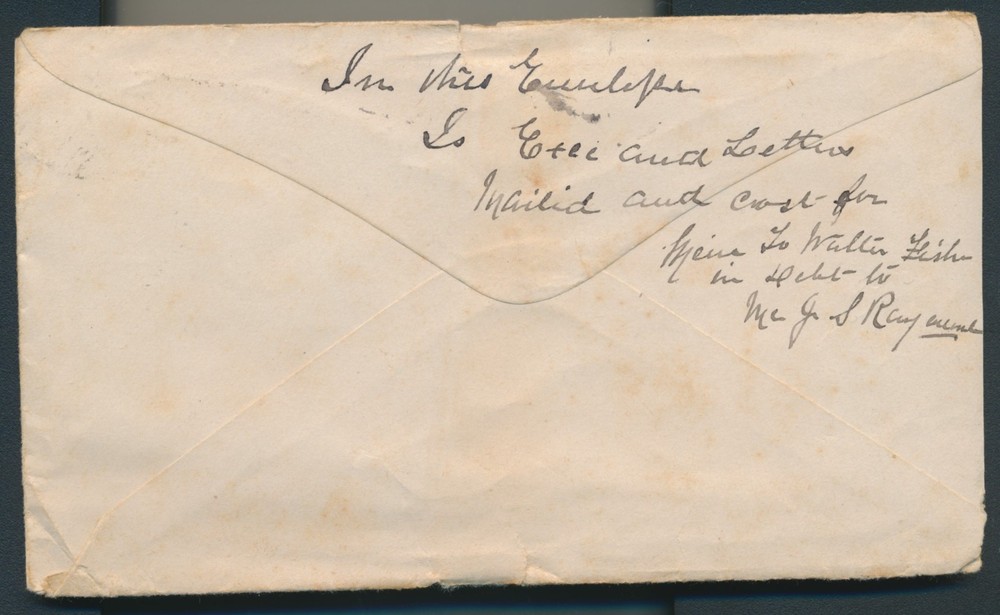 In this Envelope
Is Exec and Letters
Mailed and cost for
to Walter Fish
in debt to
Mc J S Raymond